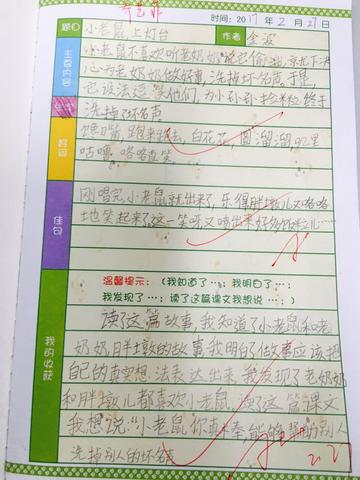 时间:2017年2月21日
题目 小老鼠上灯台 作者 金波
主要内容
小老鼠不喜欢听老奶奶说它偷油,就下决
心为老奶奶做好事,洗掉坏名声。于是,
它设法逗笑他们,为小孙孙捡米粒,终于
洗掉了坏名声
好词
馋嘴,跑来跑去,白花花,圆溜溜,叽里
咕噜,咯咯直笑
佳句
刚唱完,小老鼠就出来了,乐得胖墩儿又咯咯
地笑起来了,这一笑呀又喷出好多饭粒儿……
我的收获
温馨提示:(我知道了…;我明白了…;
我发现了…;读了这篇课文我想说…;)
读了这篇故事,我知道了小老鼠和老
奶奶胖墩的故事我明白了做事应该把
自己的真实想法表达出来,我发现了老奶奶
和胖墩儿都喜欢小老鼠,读了这篇课文
我想说:“小老鼠你真棒能够帮别人
洗掉别人的坏名声
2.22